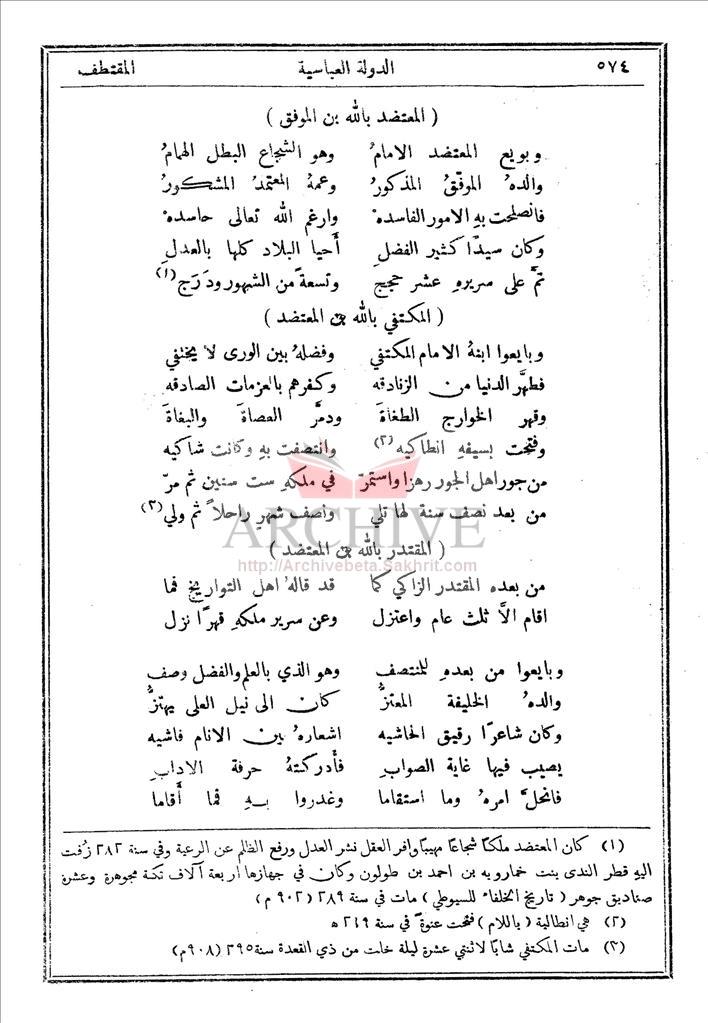 ٥٧٤ الدولة العباسية المقتطف
( المعتضد بالله بن الموفق )
وبويع المعتضد الامامُ وهو الشجاع البطل الهمامُ
والدهُ الموفّقُ المذكورُ وعمهُ المعتمدُ المشكورُ
فانصلحت بهِ الامور الفاسدهْ وارغم الله تعالى حاسدهْ
وكان سيدًا كثير الفضلِ أحيا البلاد كلها بالعدلِ
تمَّ على سريرهِ عشر حججْ وتسعةً من الشهور ودَرَج (١)
( المكتفي بالله بن المعتضد )
وبايعوا ابنهُ الامام المكتفي وفضلهُ بين الورى لا يختفي
فطهَّر الدنيا من الزنادقه وكفرهم بالعزمات الصادقه
وقهر الخوارج الطغاةَ ودمَّر العصاةَ والبغاةَ
وفتحت بسيفهِ انطاكيه (٢) وانتصفت بهِ وكانت شاكيه
من جور اهل الجور رهزا واستمرّ في ملكهِ ست سنين ثم مرّ
من بعد نصف سنة لها تلي ونصف شهرٍ راحلاً ثم ولي (٣)
ARCHIVE
( المقتدر بالله بن المعتضد )
http://Archivebeta.Sakhrit.com
من بعده المقتدر الزاكي كما قد قالهُ اهل التواريخ فما
اقام الاَّ ثلث عام واعتزل وعن سرير ملكهِ قهرًا نزل
وبايعوا من بعدهِ للمنتصف وهو الذي بالعلم والفضل وصف
والدهُ الخليفة المعتزُّ كان الى نيل العلى يهتزُّ
وكان شاعرًا رقيق الحاشيه اشعارهُ بين الانام فاشيه
يصيب فيها غاية الصوابِ فأدركتهُ حرفة الادابِ
فانحلَّ امرهُ وما استقاما وغدروا بهِ فما أقاما
(١) كان المعتضد ملكًا شجاعًا مهيبًا وافر العقل نشر العدل ورفع الظلم عن الرعية وفي سنة ٢٨٢ زُفت
اليهِ قطر الندى بنت خمارويه بن احمد بن طولون وكان في جهازها اربعة آلاف تكة مجوهرة وعشرة
صناديق جوهر ( تاريخ الخلفاء للسيوطي ) مات في سنة ٢٨٩ (٩٠٢ م)
(٢) هي انطالية ( باللام ) فتحت عنوةً في سنة ٢٤٩ ه
(٣) مات المكتفي شابًا لاثنتي عشرة ليلة خلت من ذي القعدة سنة ٢٩٥ (٩٠٨م)